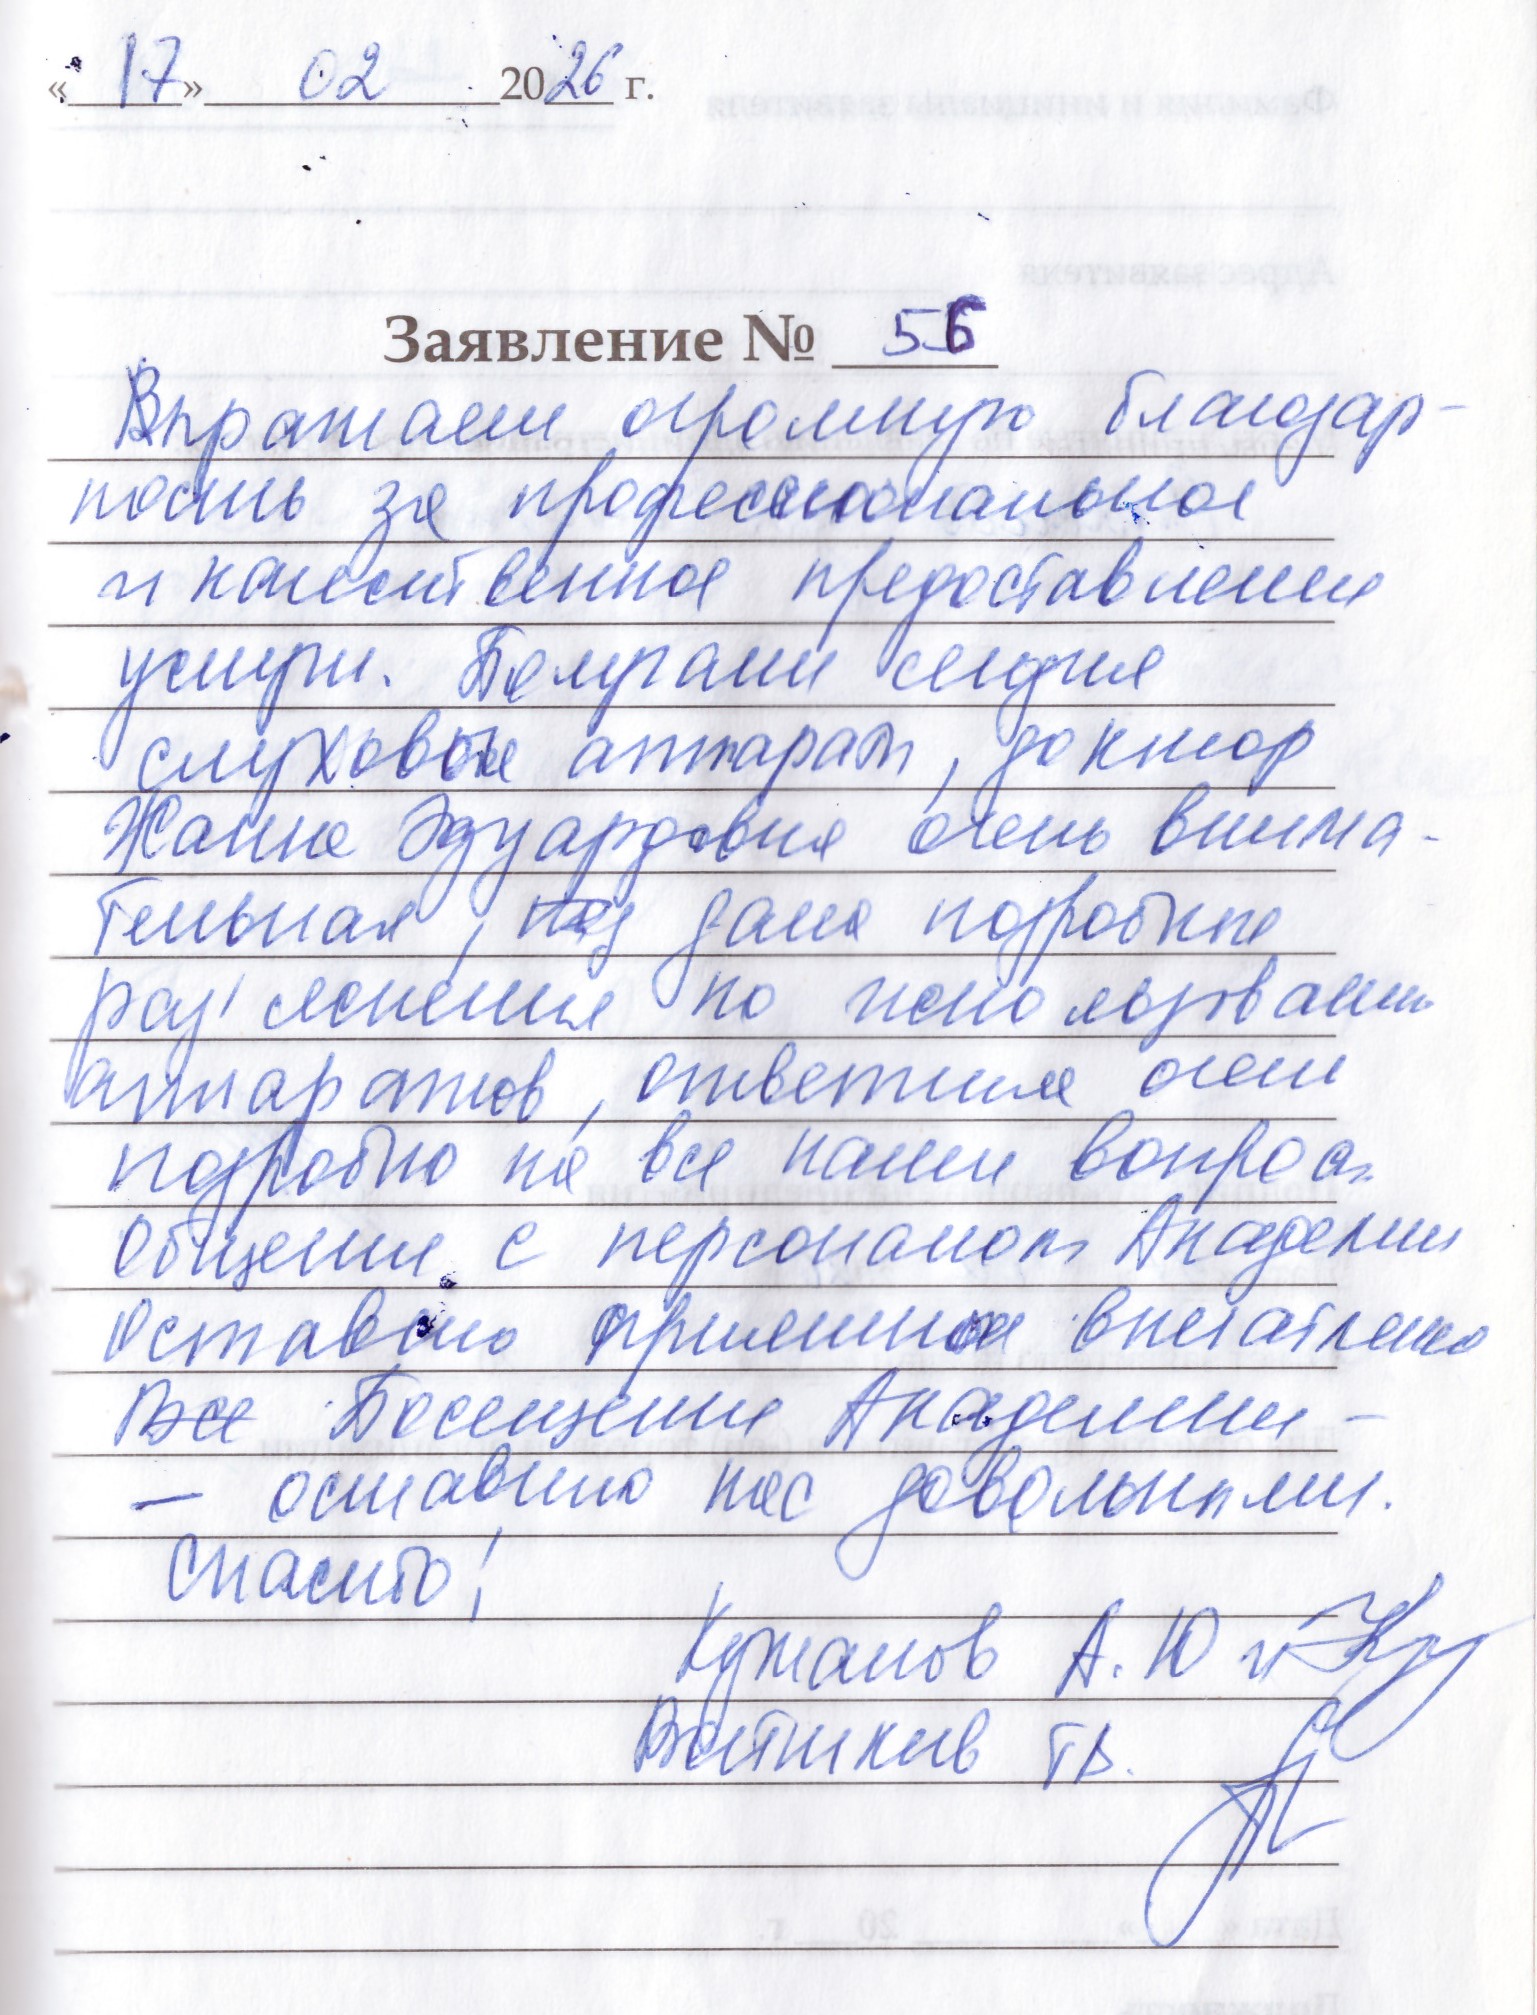 «17» 02 2026 г.
Заявление № 56
Выражаем огромную благодар-
ность за профессиональное
и качественное предоставление
услуги. Получали сегодня
слуховые аппараты, доктор
Жанна Эдуардовна очень внима-
тельная, дала подробные
раз'яснения по использованию
аппаратов, ответила очень
подробно на все наши вопросы
Общение с персоналом Академии
оставило приятное впечатление
Все Посещение Академии -
- оставило нас довольными.
Спасибо!
Кужанов А. Ю и
Т.В.